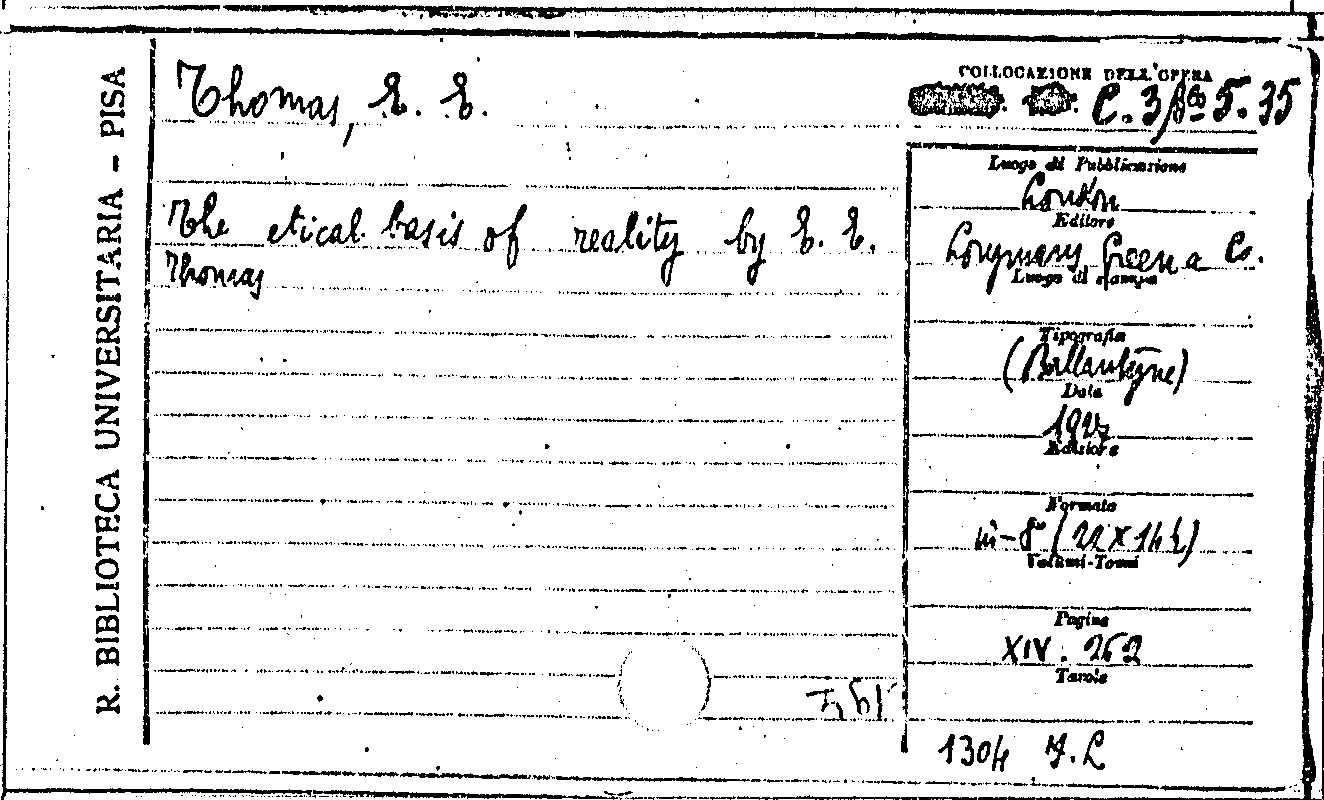 R. BIBLIOTECA UNIVERSITARIA - PISA
Thomas, E. E.
COLLOCAZIONE DELL'OPERA
C. 3 5.35
The etical basis of reality by E. E.
Thomas
Luogo di Pubblicazione
London
Editore
Longmans Green a Co.
Luogo di stampa
Tipografia
(Ballantyne)
Data
1927
Editore
Formato
in-8° (22 x 14 ½)
Volumi-Tomi
Pagine
XIV. 262
Tavole
1304